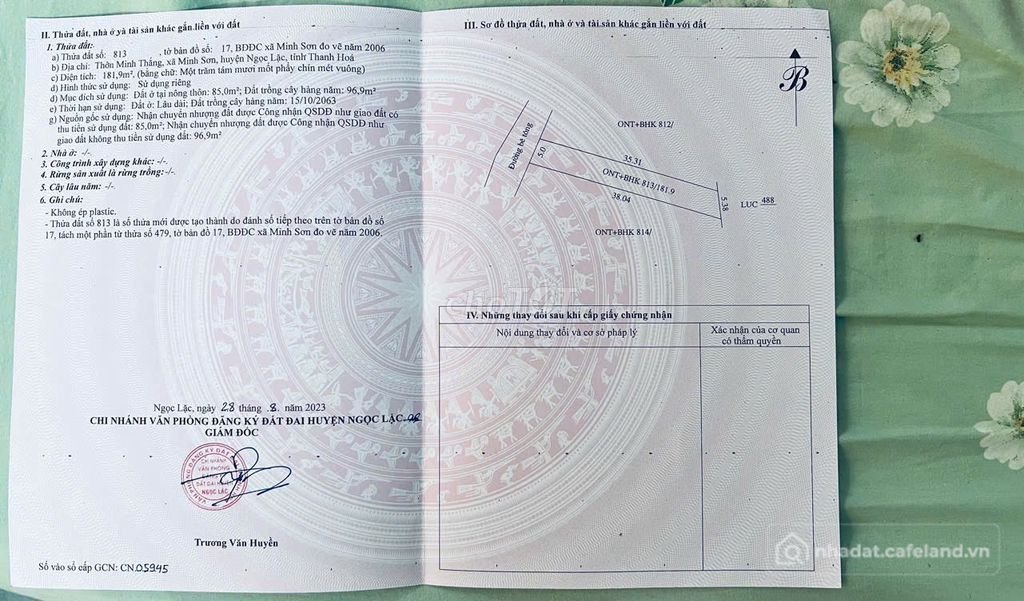 II. Thửa đất, nhà ở và tài sản khác gắn liền với đất
1. Thửa đất:
a) Thửa đất số: 813 , tờ bản đồ số: 17, BĐĐC xã Minh Sơn đo vẽ năm 2006
b) Địa chỉ: Thôn Minh Thắng, xã Minh Sơn, huyện Ngọc Lặc, tỉnh Thanh Hoá
c) Diện tích: 181,9m², (bằng chữ: Một trăm tám mươi mốt phẩy chín mét vuông)
d) Hình thức sử dụng: Sử dụng riêng
đ) Mục đích sử dụng: Đất ở tại nông thôn: 85,0m²; Đất trồng cây hàng năm: 96,9m²
e) Thời hạn sử dụng: Đất ở: Lâu dài; Đất trồng cây hàng năm: 15/10/2063
g) Nguồn gốc sử dụng: Nhận chuyển nhượng đất được Công nhận QSDĐ như giao đất có
thu tiền sử dụng đất: 85,0m²; Nhận chuyển nhượng đất được Công nhận QSDĐ như
giao đất không thu tiền sử dụng đất: 96,9m²
2. Nhà ở: -/-.
3. Công trình xây dựng khác: -/-.
4. Rừng sản xuất là rừng trồng: -/-.
5. Cây lâu năm: -/-.
6. Ghi chú:
- Không ép plastic.
- Thửa đất số 813 là số thửa mới được tạo thành do đánh số tiếp theo trên tờ bản đồ số
17, tách một phần từ thửa số 479, tờ bản đồ 17, BĐĐC xã Minh Sơn đo vẽ năm 2006.
Ngọc Lặc, ngày 28 tháng 8 năm 2023
CHI NHÁNH VĂN PHÒNG ĐĂNG KÝ ĐẤT ĐAI HUYỆN NGỌC LẶC
GIÁM ĐỐC
CHI NHÁNH
VĂN PHÒNG
ĐĂNG KÝ
ĐẤT ĐAI
NGỌC LẶC
Trương Văn Huyền
Số vào sổ cấp GCN: CN 05945
III. Sơ đồ thửa đất, nhà ở và tài sản khác gắn liền với đất
B
Đường bê tông
ONT+BHK 812/
5.0
35.31
ONT+BHK 813/181.9
38.04
5.38
LUC 488
ONT+BHK 814/
chợTỐT
IV. Những thay đổi sau khi cấp giấy chứng nhận
Nội dung thay đổi và cơ sở pháp lý
Xác nhận của cơ quan
có thẩm quyền
nhadat.cafeland.vn